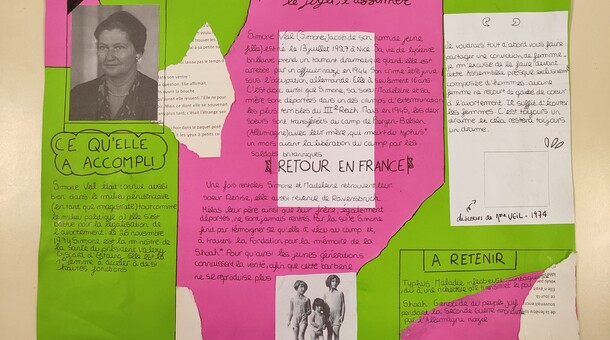 le juger, l'assumer
Simone Veil (Simone Jacob de son nom de jeune
fille) est née le 13 juillet 1927 à Nice. Sa vie de lycéenne
brillante prend un tournant dramatique quand elle est
arrêtée par un officier nazi en 1944. Son crime être juive
sous l'occupation allemande. Elle a seulement 16 ans.
C'est donc ainsi que Simone, sa soeur Madeleine et sa
mère sont déportées dans un des camps d'extermination
les plus terribles du IIIe Reich. Mais en 1945, les deux
soeurs sont transférées au camp de Bergen-Belsen
(Allemagne) avec leur mère, qui meurt du typhus*
un mois avant la libération du camp par les
soldats britanniques.
RETOUR EN FRANCE
Une fois rentrées Simone et Madeleine retrouvent leur
soeur Denise, elle aussi revenue de Ravensbrück.
Hélas leur père ainsi que leur frère, également
déportés, ne sont jamais rentrés. Par la suite Simone
finit par témoigner se qu'elle a vécu au camp et, à
à travers la Fondation pour la mémoire de la
Shoah* Pour qu'aussi les jeunes générations
connaissent la vérité, afin que cette barbarie
ne se reproduise plus.
CE QU'ELLE
A ACCOMPLI
Simone Veil était connue aussi
bien dans le milieu pénitentiaire
(en tant que magistrat) tout comme
le milieu politique où elle s'est
battue pour la légalisation de
l'avortement. Le 26 novembre
1974 Simone est la ministre de
la Santé du président Valéry
Giscard d'Estaing, elle est la
1ère femme à accéder à de si
hautes fonctions.
Je voudrais tout d'abord vous faire
partager une conviction de femme
je m'excuse de le faire devant
cette Assemblée presque exclusivement
composée d'hommes: aucune
femme ne recourt de gaieté de coeur
à l'avortement. Il suffit d'écouter
les femmes. C'est toujours un
drame et cela restera toujours
un drame
discours de Mme VEIL - 1974
A RETENIR
Typhus: Maladie infectieuse, contagieuse
Shoah: Génocide du peuple juif
pendant la Seconde Guerre mondiale
par l'Allemagne nazie